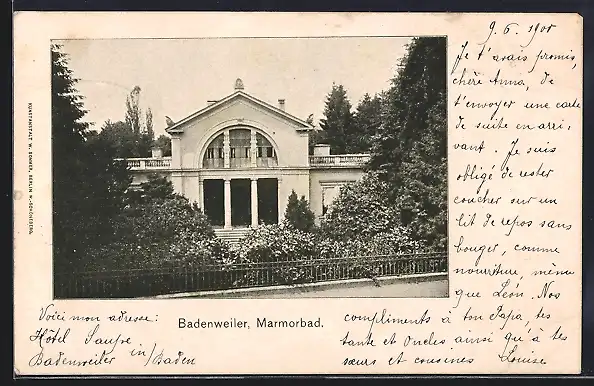 9.6.1901
Je t'avais promis,
chère Anna, de
t'envoyer une carte
de suite en arri,
vant. Je suis
obligé de rester
coucher sur un
lit de repos sans
bouger, comme
nourriture, même
que Léon. Nos
compliments à ton Papa, tes
tante et Oncles ainsi qu'à tes
sœurs et cousines Louise
Voici mon adresse:
Hôtel
Badenweiler in/Baden
Badenweiler, Marmorbad.
KUNSTANSTALT W. SOMMER, BERLIN N.-SCHÖNEBERG.